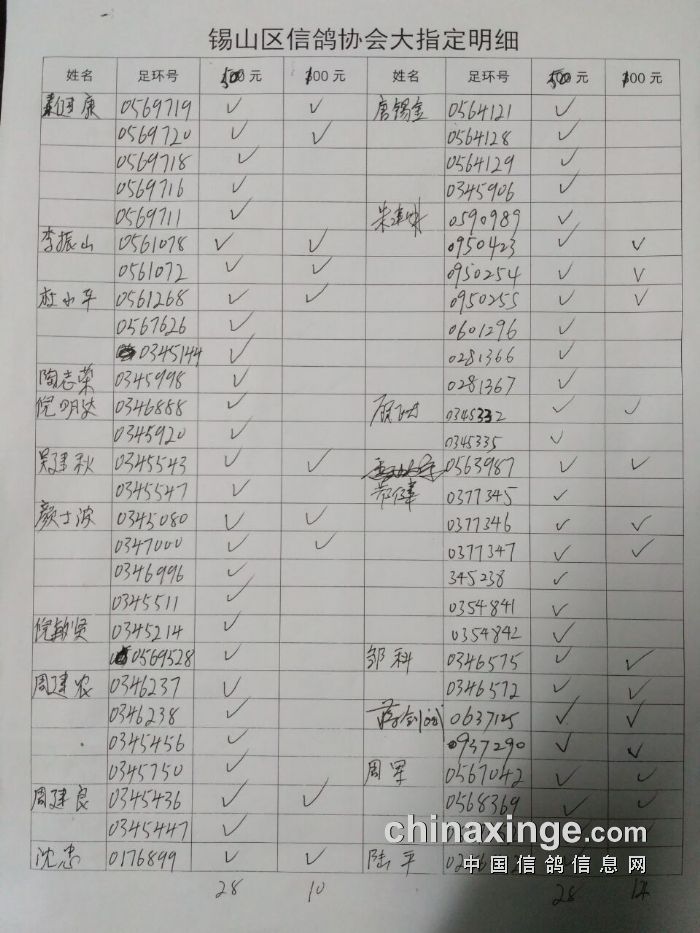 锡山区信鸽协会大指定明细
姓名 足环号 500元 100元 姓名 足环号 500元 100元
康 0569719 ✓ ✓ 唐锡金 0564121 ✓
0569720 ✓ ✓ 0564128 ✓
0569718 ✓ 0564129 ✓
0569716 ✓ 0345906 ✓
0569711 ✓ 朱 0590989 ✓
李振山 0561078 ✓ ✓ 0950423 ✓ ✓
0561072 ✓ ✓ 0950254 ✓ ✓
杜小平 0561268 ✓ ✓ 0950255 ✓ ✓
0567626 ✓ 0601296 ✓
0345144 ✓ 0281366 ✓
陶志荣 0345998 ✓ 0281367 ✓
倪明 0346888 ✓ 0345332 ✓ ✓
0345920 ✓ 0345335 ✓
吴建秋 0345543 ✓ ✓ 0563987 ✓ ✓
0345547 ✓ 0377345 ✓
颜士波 0345080 ✓ ✓ 0377346 ✓ ✓
0347000 ✓ ✓ 0377347 ✓ ✓
0346996 ✓ 345238 ✓
0345511 ✓ 0354841 ✓
倪敏贤 0345214 ✓ 0354842 ✓
0569528 ✓ 邹科 0346575 ✓ ✓
周建农 0346237 ✓ 0346572 ✓ ✓
0346238 ✓ 蒋剑斌 0637125 ✓ ✓
0345456 ✓ 0937290 ✓ ✓
0345750 ✓ 周军 0567042 ✓ ✓
周建良 0345436 ✓ ✓ 0568369 ✓ ✓
0345447 ✓
沈忠 0176899 ✓ ✓ 陆平
28 10 28 14
chinaxinge.com
中国信鸽信息网